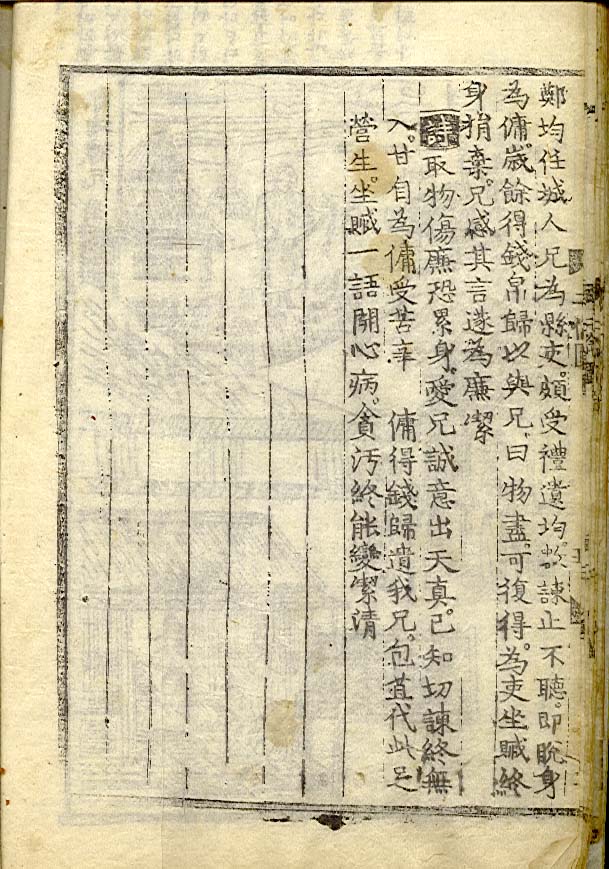 鄭均任城人兄為縣吏。頗受禮遺均數諫止不聽。即脫身
為傭。歲餘得錢帛歸以與兄。曰物盡可復得。為吏坐贓終
身捐棄。兄感其言遂為廉潔
詩 取物傷廉恐累身。愛兄誠意出天真。已知切諫終無
入。甘自為傭受苦辛 傭得錢歸遺我兄。包苴代此足
營生。坐贓一語開心病。貪汚終能變潔清